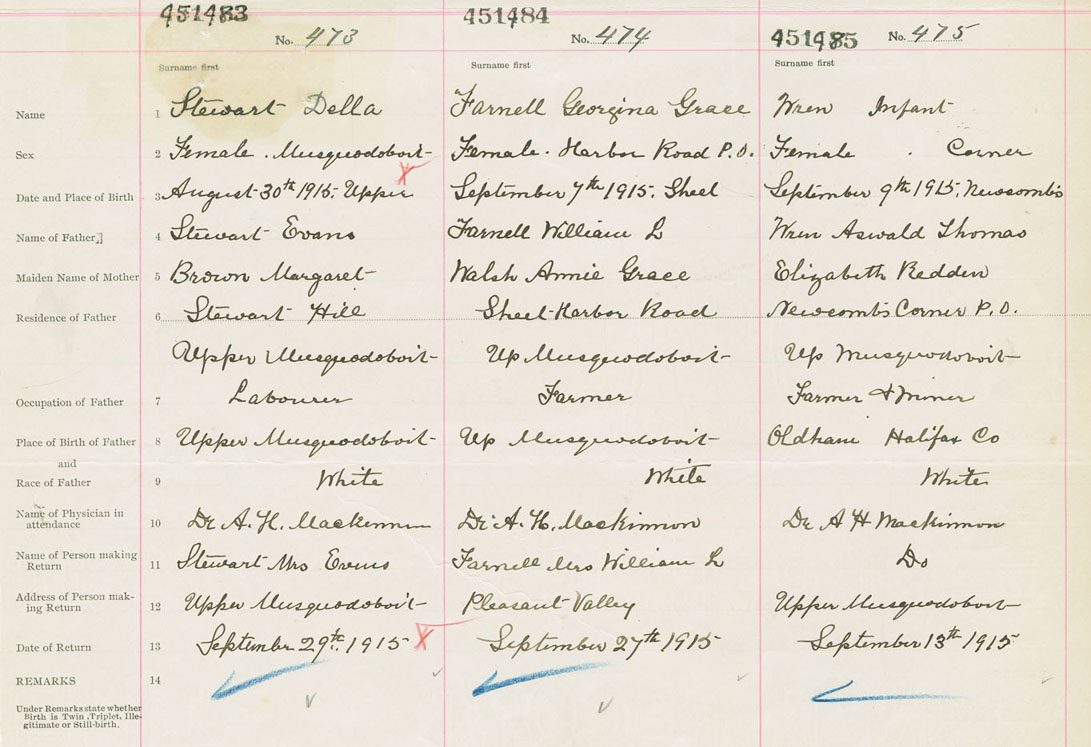 451483 451484 451485
No. 473 No. 474 No. 475
Surname first Surname first Surname first
Name 1 Stewart Della Farnell Georgina Grace Wren Infant
Sex 2 Female. Musquodoboit Female. Harbor Road P.O. Female. Corner
Date and Place of Birth 3 August 30th 1915. Upper September 7th 1915. Sheet September 9th 1915. Newcombs
Name of Father 4 Stewart Evans Farnell William L Wren Aswald Thomas
Maiden Name of Mother 5 Brown Margaret Walsh Annie Grace Elizabeth Redden
Residence of Father 6 Stewart Hill Sheet Harbor Road Newcombs Corner P.O.
Upper Musquodoboit Up Musquodoboit Up Musquodoboit
Occupation of Father 7 Labourer Farmer Farmer & Miner
Place of Birth of Father 8 Upper Musquodoboit Up Musquodoboit Oldham Halifax Co
and
Race of Father 9 White White White
Name of Physician in
attendance 10 Dr A. H. Mackinnon Dr A. H. Mackinnon Dr A H Mackinnon
Name of Person making
Return 11 Stewart Mrs Evans Farnell Mrs William L Do
Address of Person mak-
ing Return 12 Upper Musquodoboit Pleasant Valley Upper Musquodoboit
Date of Return 13 September 29th. 1915 X September 27th 1915 September 13th 1915
REMARKS 14
Under Remarks state whether
Birth is Twin, Triplet, Ille-
gitimate or Still-birth.